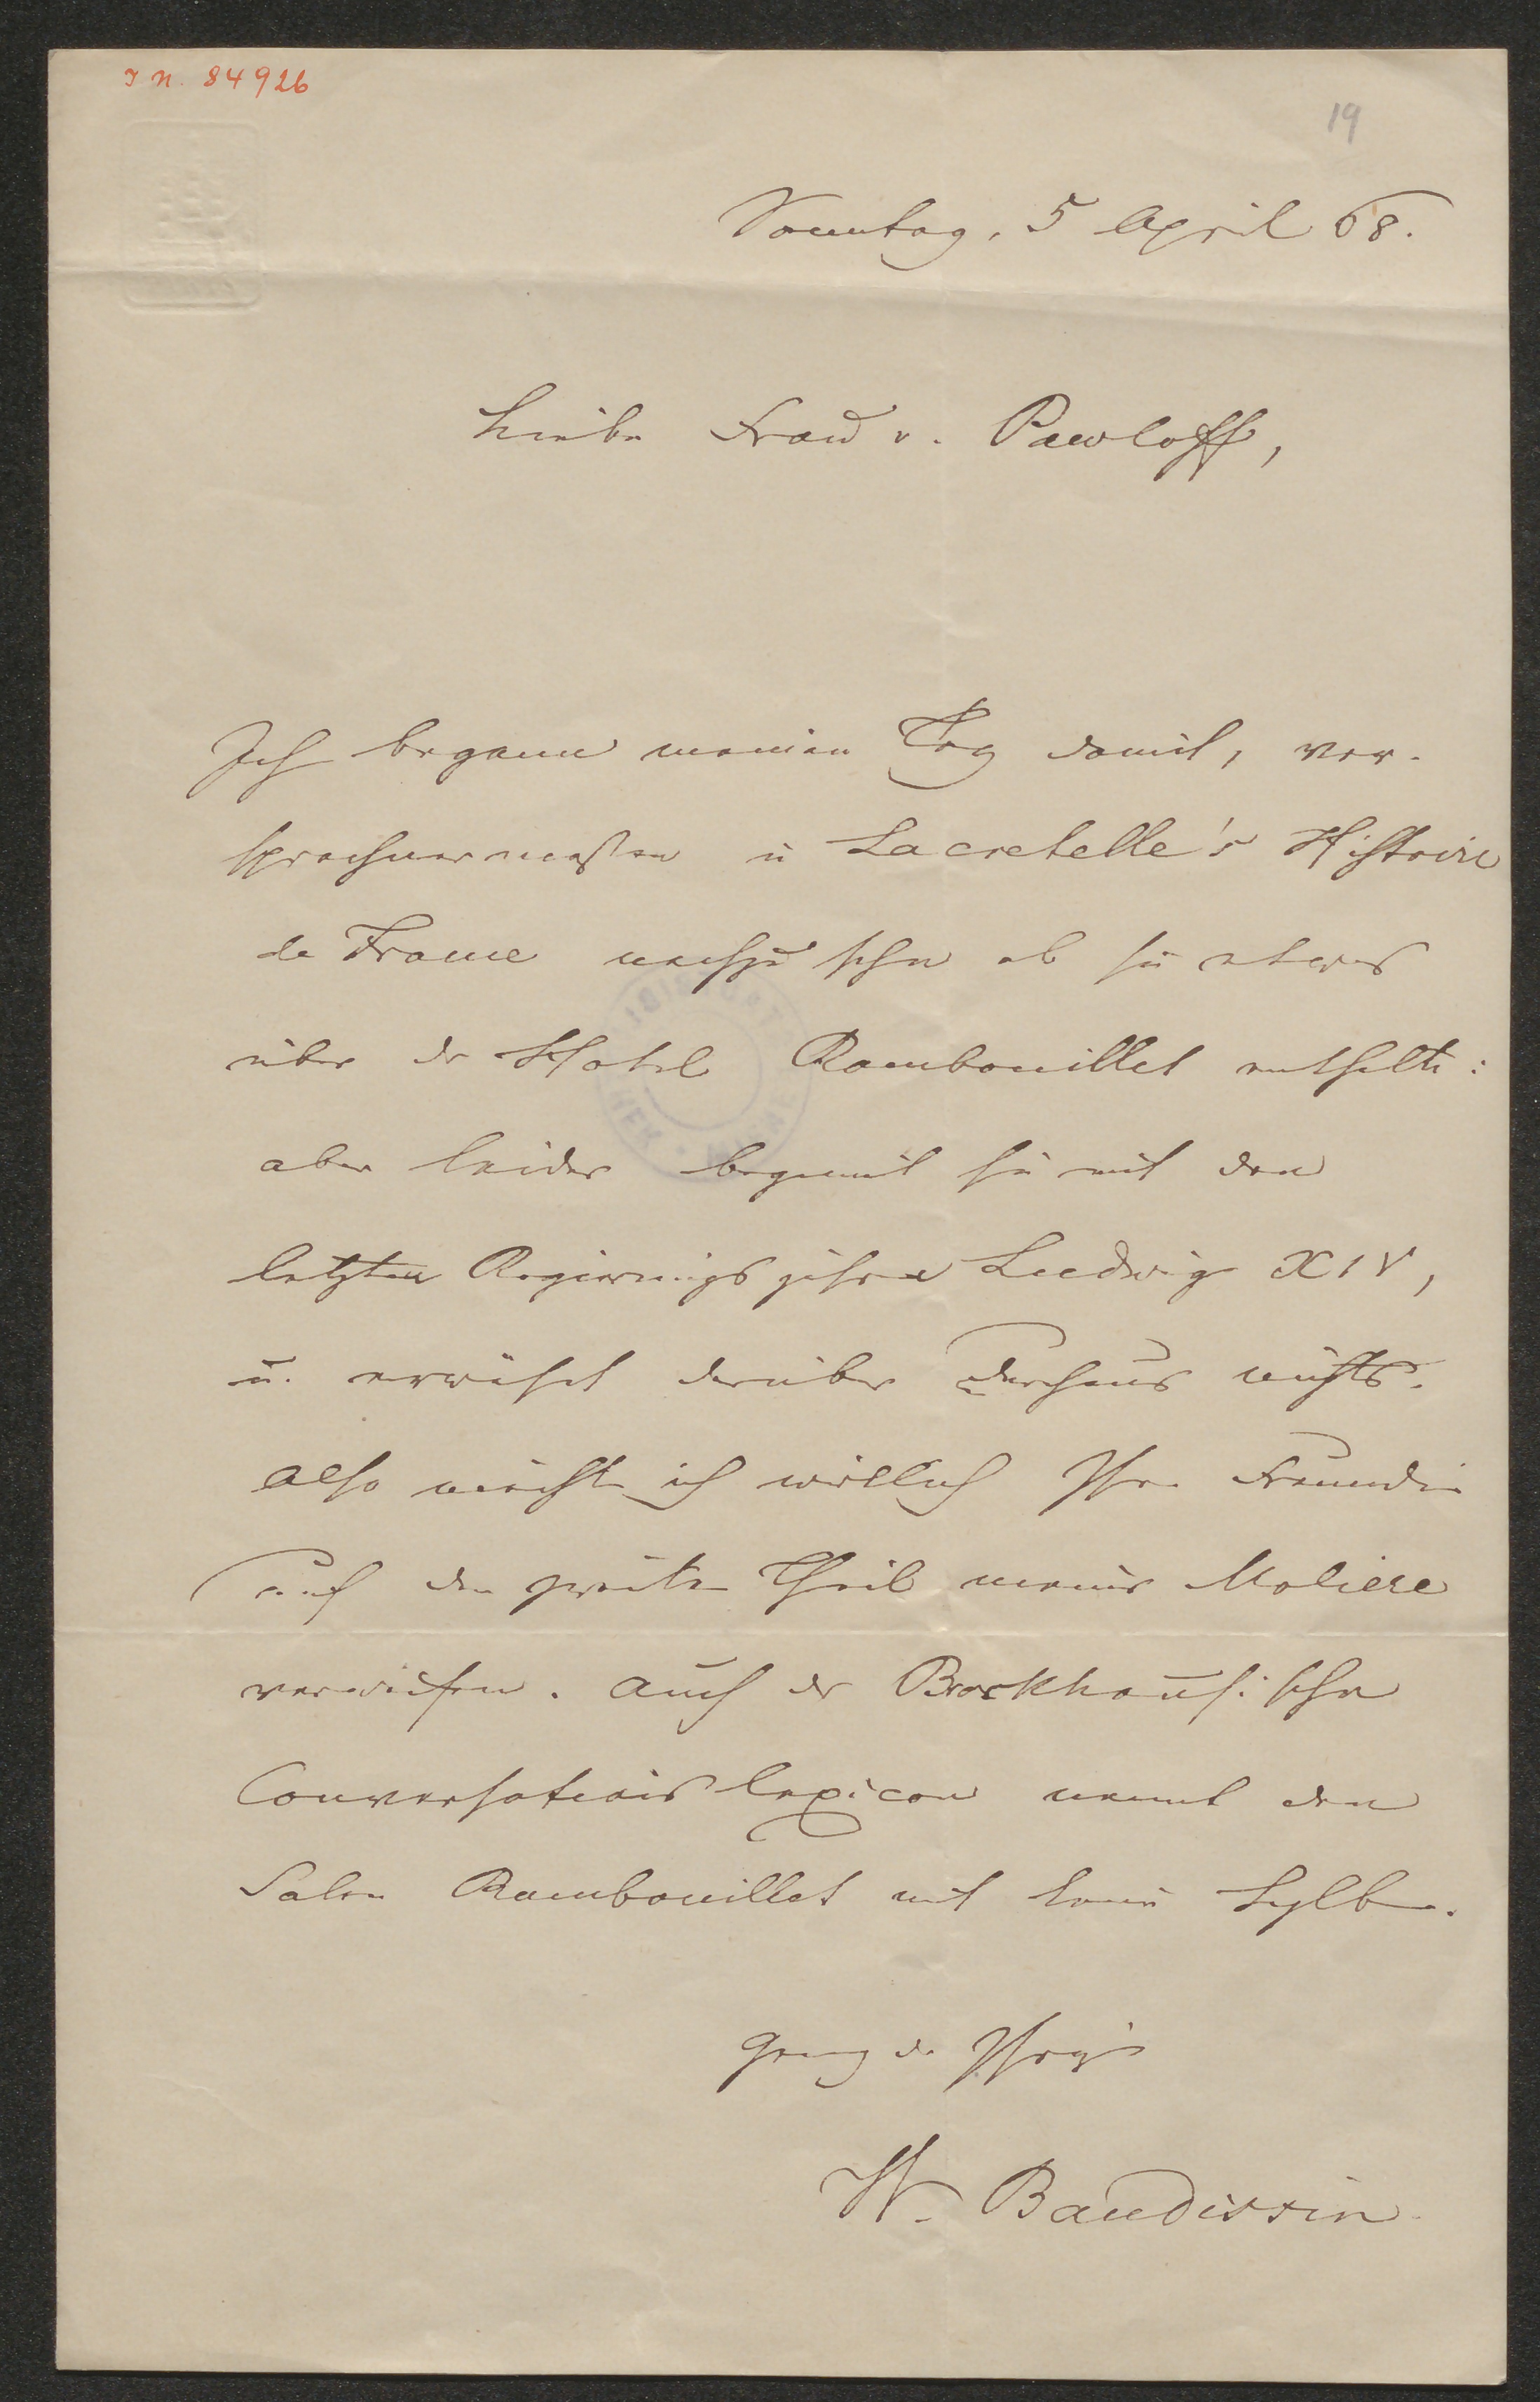 I N. 84926
19
Sonntag, 5 April 68.
Liebe Frau v. Pawloff,
Ich begann meinen Tag damit, ver-
sprochnermaßen in Lacretelle's Histoire
de France nachzusehn ob sie etwas
über das Hotel Rambouillet enthielte:
aber leider beginnt sie mit den
letzten Regierungsjahren Ludwig XIV,
u. erwähnt darüber durchaus nichts.
Also möchte ich wirklich Ihre Freundin
auf den zweiten Theil meines Moliere
verweisen. Auch das Brockhausische
Conversationslexicon nennt den
Salon Rambouillet mit keiner Sylbe.
Ganz der Ihrige
W. Baudissin